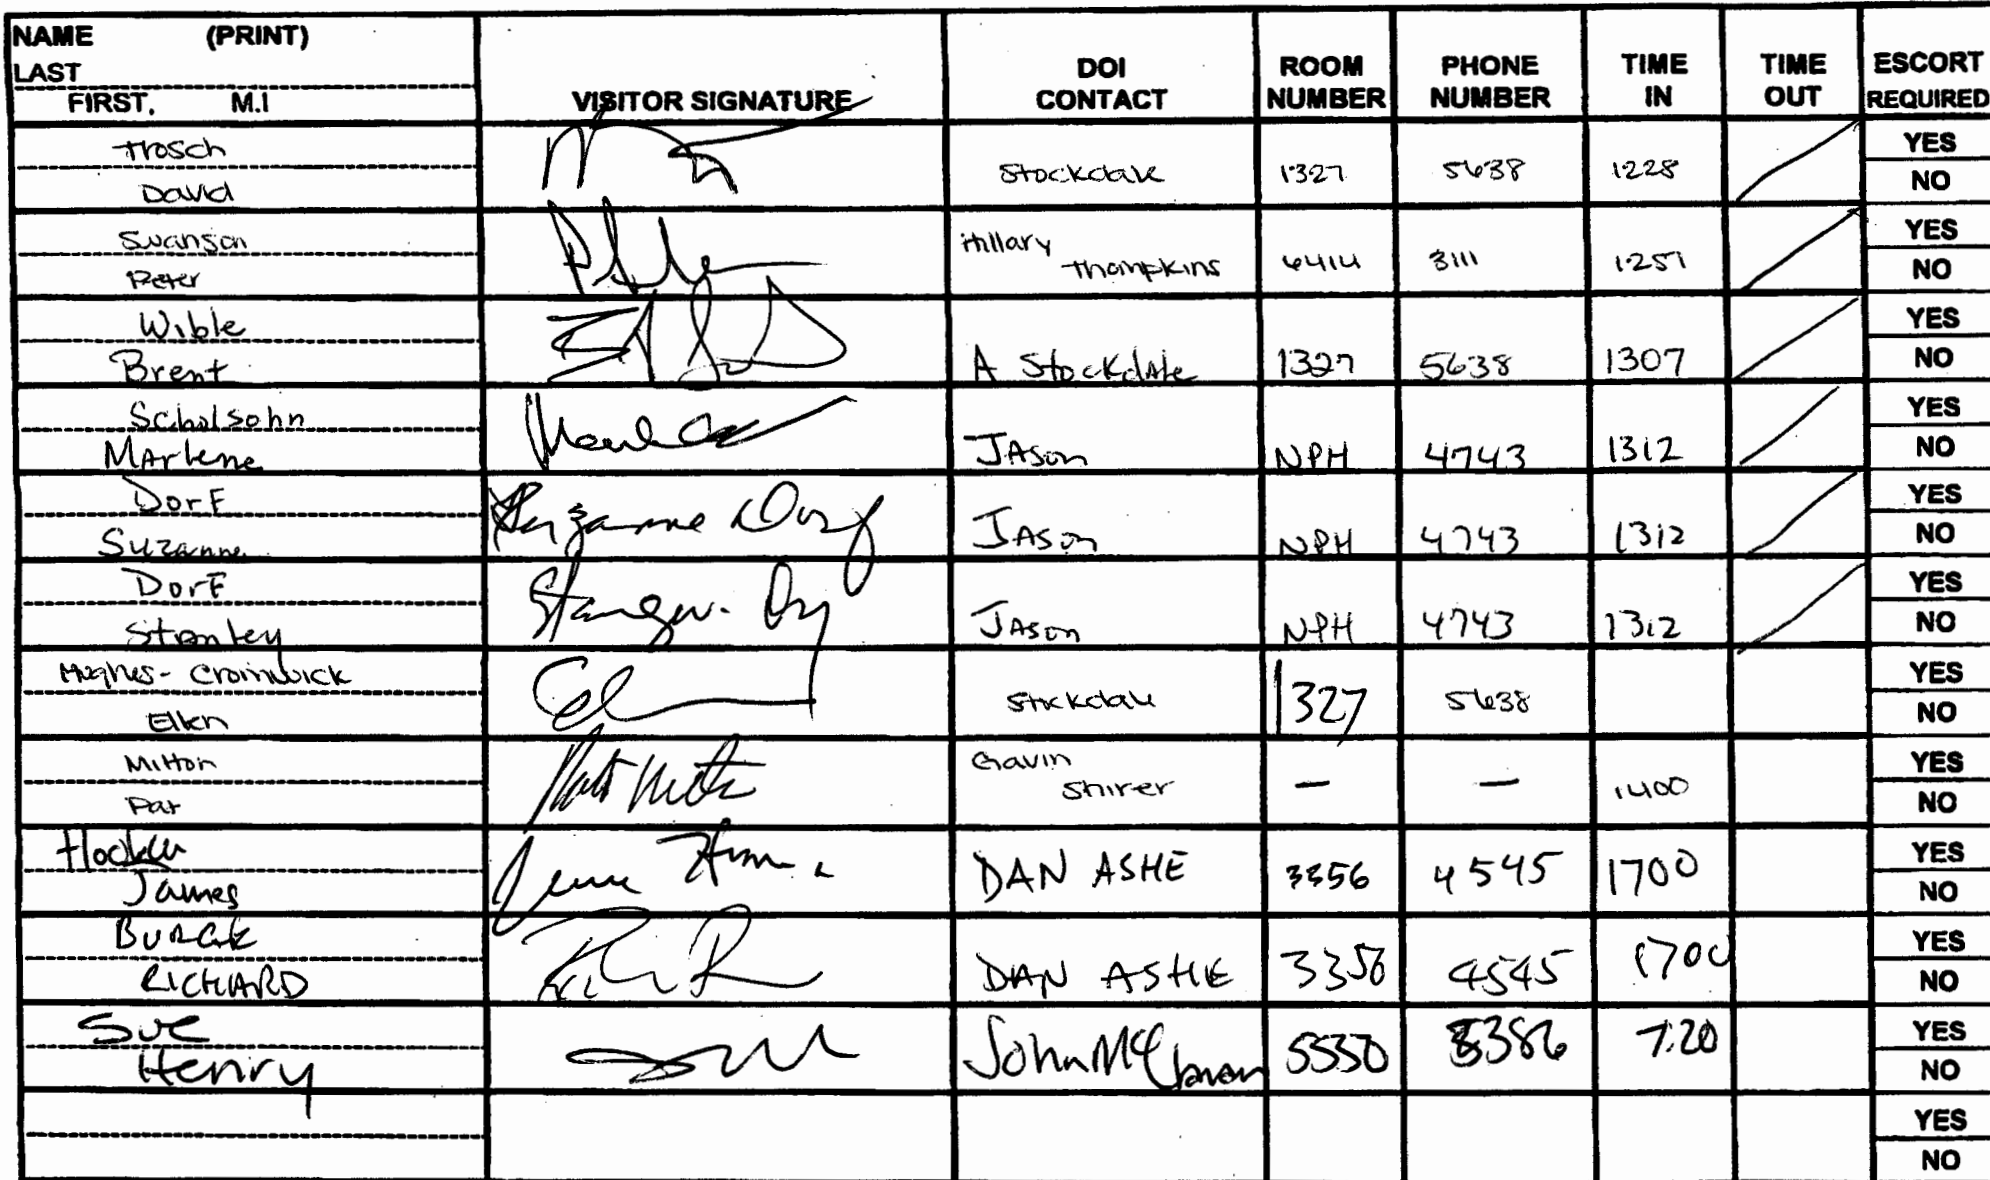 NAME (PRINT)
LAST
FIRST, M.I
VISITOR SIGNATURE
DOI CONTACT
ROOM NUMBER
PHONE NUMBER
TIME IN
TIME OUT
ESCORT REQUIRED
Trosch
David
Stockdale 1327 5638 1228
YES
NO
Swanson
Peter
Hillary Thompkins 6414 3111 1251
YES
NO
Wible
Brent
A Stockdale 1327 5638 1307
YES
NO
Scholsohn
Marlene
JASon NPH 4743 1312
YES
NO
Dorf
Suzanne
Suzanne Dorf
JASon NPH 4743 1312
YES
NO
Dorf
Stanley
JASon NPH 4743 1312
YES
NO
Hughes-Cromwick
Ellen
Stockdale 1327 5638
YES
NO
Mitton
Pat
Gavin Shirer — — 1400
YES
NO
Hooker
James
DAN ASHE 3356 4545 1700
YES
NO
BURCK
RICHARD
DAN ASHE 3356 4545 1700
YES
NO
Sue
Henry
John 5550 8386 7:20
YES
NO
YES
NO